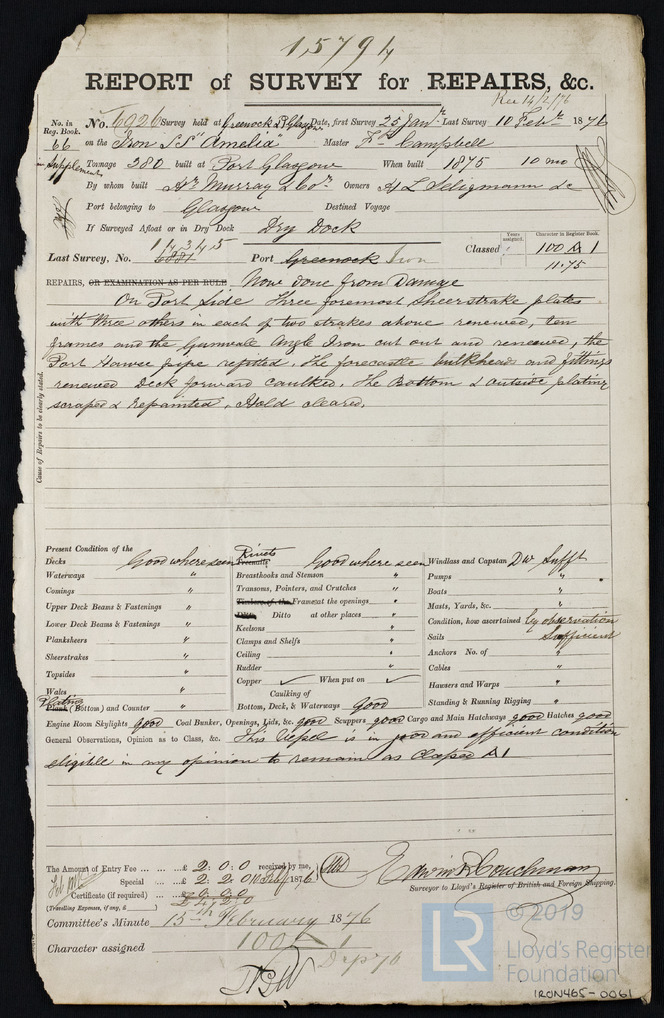 15794
REPORT of SURVEY for REPAIRS, &c.
Rec 14/2/76
No. in Reg. Book.
66
Supplement
No. 6026 Survey held at Greenock & Pt Glasgow Date, first Survey 25 Jany. Last Survey 10 Feby. 1876
on the Iron S.S "Amelia" Master Campbell
Tonnage 380 built at Port Glasgow When built 1875 10 mo
By whom built Hy. Murray & Co. Owners H L Seligmann &c
Port belonging to Glasgow Destined Voyage
If Surveyed Afloat or in Dry Dock Dry Dock
Years assigned. Character in Register Book.
Classed 100 A 1
11.75
14345
Last Survey, No. 6881 Port Greenock Iron
REPAIRS, OR EXAMINATION AS PER RULE Now done from Damage
Cause of Repairs to be clearly stated.
On Port Side Three foremost Sheerstrake plates
with three others in each of two strakes above renewed, ten
frames and the Gunwale Angle Iron cut out and renewed, the
Port Hawse pipe refitted, the forecastle bulkheads and fittings
renewed Deck forward caulked, The Bottom & outside plating
scraped & repainted, Hold cleared.
Present Condition of the
Decks Good where seen
Waterways "
Comings "
Upper Deck Beams & Fastenings "
Lower Deck Beams & Fastenings "
Planksheers "
Sheerstrakes "
Topsides "
Wales "
Plating
Plank (Bottom) and Counter "
Rivets
Treenails Good where seen
Breasthooks and Stemson "
Transoms, Pointers, and Crutches "
Timbers of the Frame at the openings "
Ditto Ditto at other places "
Keelsons "
Clamps and Shelfs "
Ceiling "
Rudder "
Copper ✓ When put on ✓
Caulking of
Bottom, Deck, & Waterways Good
Windlass and Capstan Dw Sufft
Pumps "
Boats "
Masts, Yards, &c. "
Condition, how ascertained by observation
Sails Sufficient
Anchors No. of "
Cables "
Hawsers and Warps "
Standing & Running Rigging "
Engine Room Skylights good Coal Bunker, Openings, Lids, &c. good Scuppers good Cargo and Main Hatchways good Hatches good
General Observations, Opinion as to Class, &c. This Vessel is in good and efficient condition
eligible in my opinion to remain as Classed A 1
The Amount of Entry Fee ... ... £ 2:0:0 received by me,
Special ... ... £ 2:2:0 10 Feby 1876
Certificate (if required) ...
(Travelling Expenses, if any, £ )
Edwin Couchman
Surveyor to Lloyd's Register of British and Foreign Shipping.
Committee's Minute 15th February 1876
Character assigned 100 A 1
© 2019
LR
Lloyd's Register
Foundation
IRON465-0061